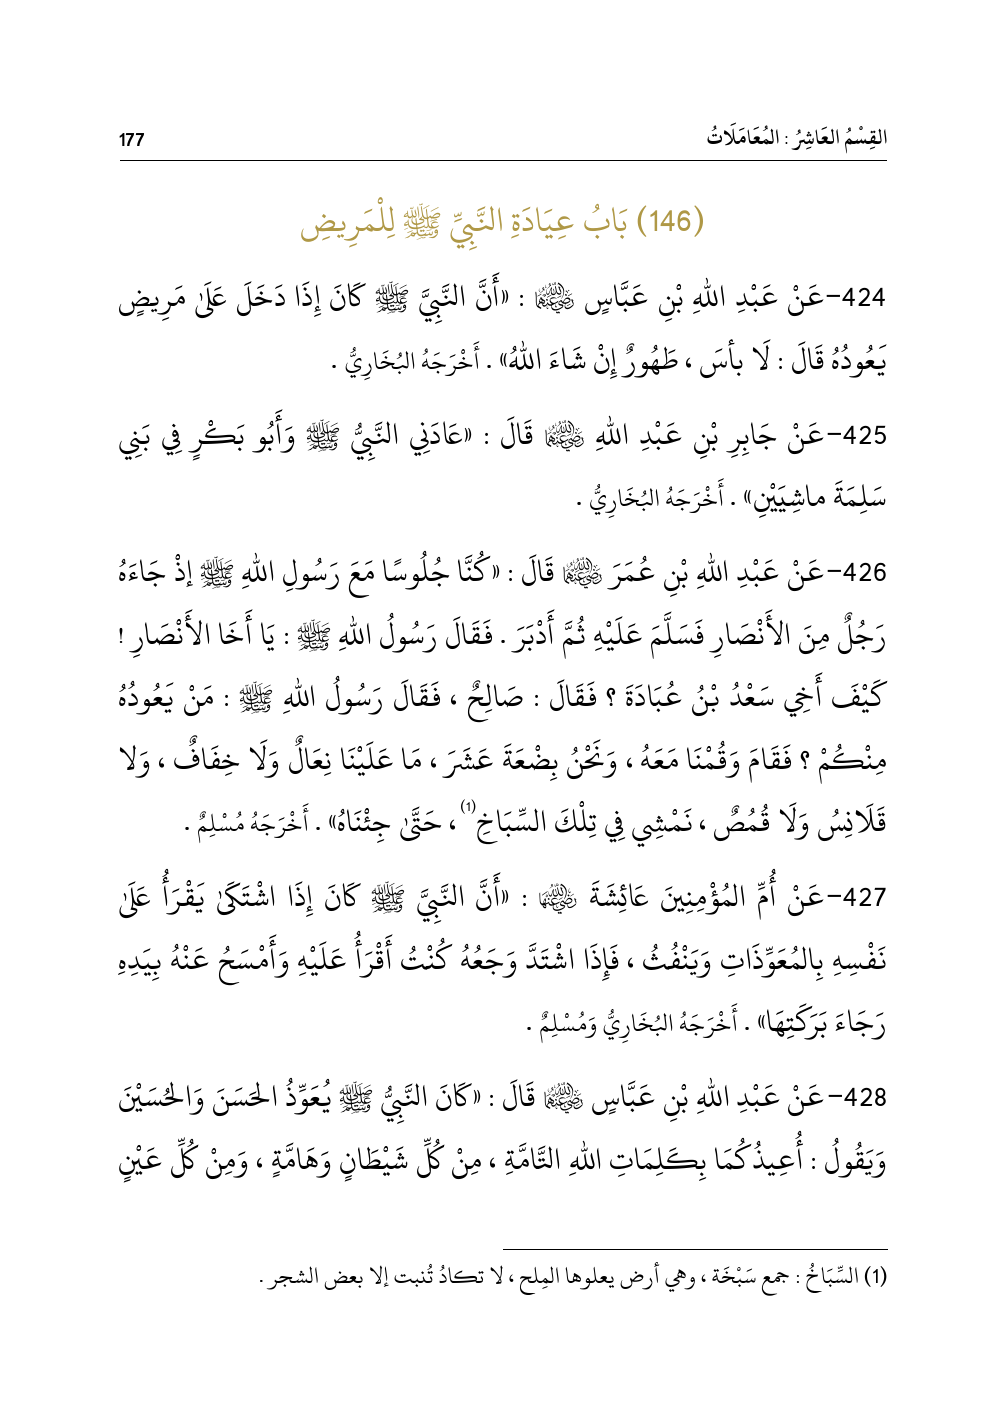 القِسْمُ العَاشِرُ : المُعَامَلَاتُ 177
(146) بَابُ عِيَادَةِ النَّبِيِّ ﷺ لِلْمَرِيضِ
424-عَنْ عَبْدِ اللهِ بْنِ عَبَّاسٍ رضي الله عنهما : «أَنَّ النَّبِيَّ ﷺ كَانَ إِذَا دَخَلَ عَلَىٰ مَرِيضٍ
يَعُودُهُ قَالَ : لَا بأسَ ، طَهُورٌ إِنْ شَاءَ اللهُ» . أَخْرَجَهُ البُخَارِيُّ .
425-عَنْ جَابِرِ بْنِ عَبْدِ اللهِ رضي الله عنهما قَالَ : «عَادَنِي النَّبِيُّ ﷺ وَأَبُو بَكْرٍ فِي بَنِي
سَلِمَةَ ماشِيَيْنِ» . أَخْرَجَهُ البُخَارِيُّ .
426-عَنْ عَبْدِ اللهِ بْنِ عُمَرَ رضي الله عنهما قَالَ : «كُنَّا جُلُوسًا مَعَ رَسُولِ اللهِ ﷺ إذْ جَاءَهُ
رَجُلٌ مِنَ الأَنْصَارِ فَسَلَّمَ عَلَيْهِ ثُمَّ أَدْبَرَ . فَقَالَ رَسُولُ اللهِ ﷺ : يَا أَخَا الأَنْصَارِ !
كَيْفَ أَخِي سَعْدُ بْنُ عُبَادَةَ ؟ فَقَالَ : صَالِحٌ ، فَقَالَ رَسُولُ اللهِ ﷺ : مَنْ يَعُودُهُ
مِنْكُمْ ؟ فَقَامَ وَقُمْنَا مَعَهُ ، وَنَحْنُ بِضْعَةَ عَشَرَ ، مَا عَلَيْنَا نِعَالٌ وَلَا خِفَافٌ ، وَلا
قَلَانِسُ وَلَا قُمُصٌ ، نَمْشِي فِي تِلْكَ السِّبَاخِ(1) ، حَتَّىٰ جِئْنَاهُ» . أَخْرَجَهُ مُسْلِمٌ .
427-عَنْ أُمِّ المُؤْمِنِينَ عَائِشَةَ رضي الله عنها : «أَنَّ النَّبِيَّ ﷺ كَانَ إِذَا اشْتَكَىٰ يَقْرَأُ عَلَىٰ
نَفْسِهِ بِالمُعَوِّذَاتِ وَيَنْفُثُ ، فَإِذَا اشْتَدَّ وَجَعُهُ كُنْتُ أَقْرَأُ عَلَيْهِ وَأَمْسَحُ عَنْهُ بِيَدِهِ
رَجَاءَ بَرَكَتِهَا» . أَخْرَجَهُ البُخَارِيُّ وَمُسْلِمٌ .
428-عَنْ عَبْدِ اللهِ بْنِ عَبَّاسٍ رضي الله عنهما قَالَ : «كَانَ النَّبِيُّ ﷺ يُعَوِّذُ الحَسَنَ وَالحُسَيْنَ
وَيَقُولُ : أُعِيذُكُمَا بِكَلِمَاتِ اللهِ التَّامَّةِ ، مِنْ كُلِّ شَيْطَانٍ وَهَامَّةٍ ، وَمِنْ كُلِّ عَيْنٍ
(1) السِّبَاخُ : جمع سَبْخَة ، وهي أرض يعلوها المِلح ، لا تكادُ تُنبت إلا بعض الشجر .